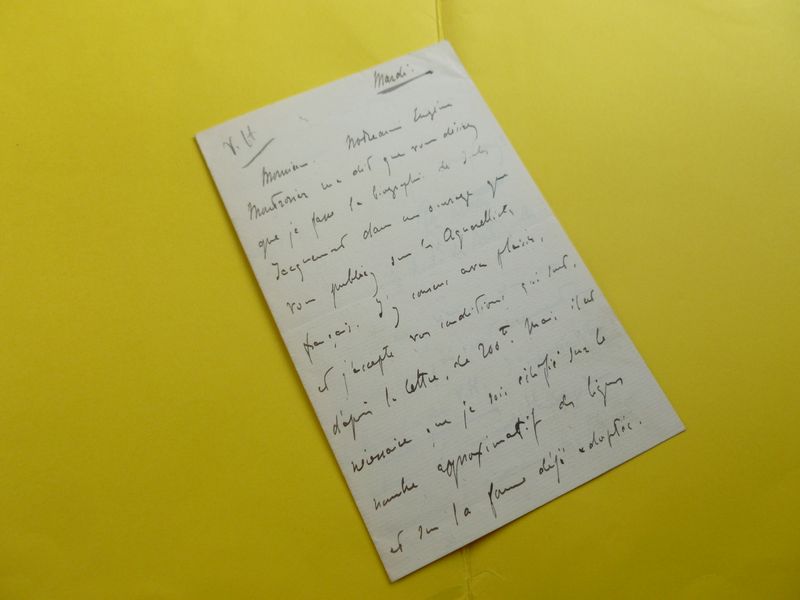 Mardi.
V. H
Monsieur. Madame Eugène
Montrosier m'a dit que vous désirez
que je fasse la biographie de Jules
Jacquemart dans un ouvrage que
vous publiez sur les Aquarellistes
français. J'y consens avec plaisir,
et j'accepte vos conditions qui sont,
d'après la lettre, de 200f. Mais il est
nécessaire que je sois édifié sur le
nombre approximatif des lignes
et sur la forme déjà adoptée.